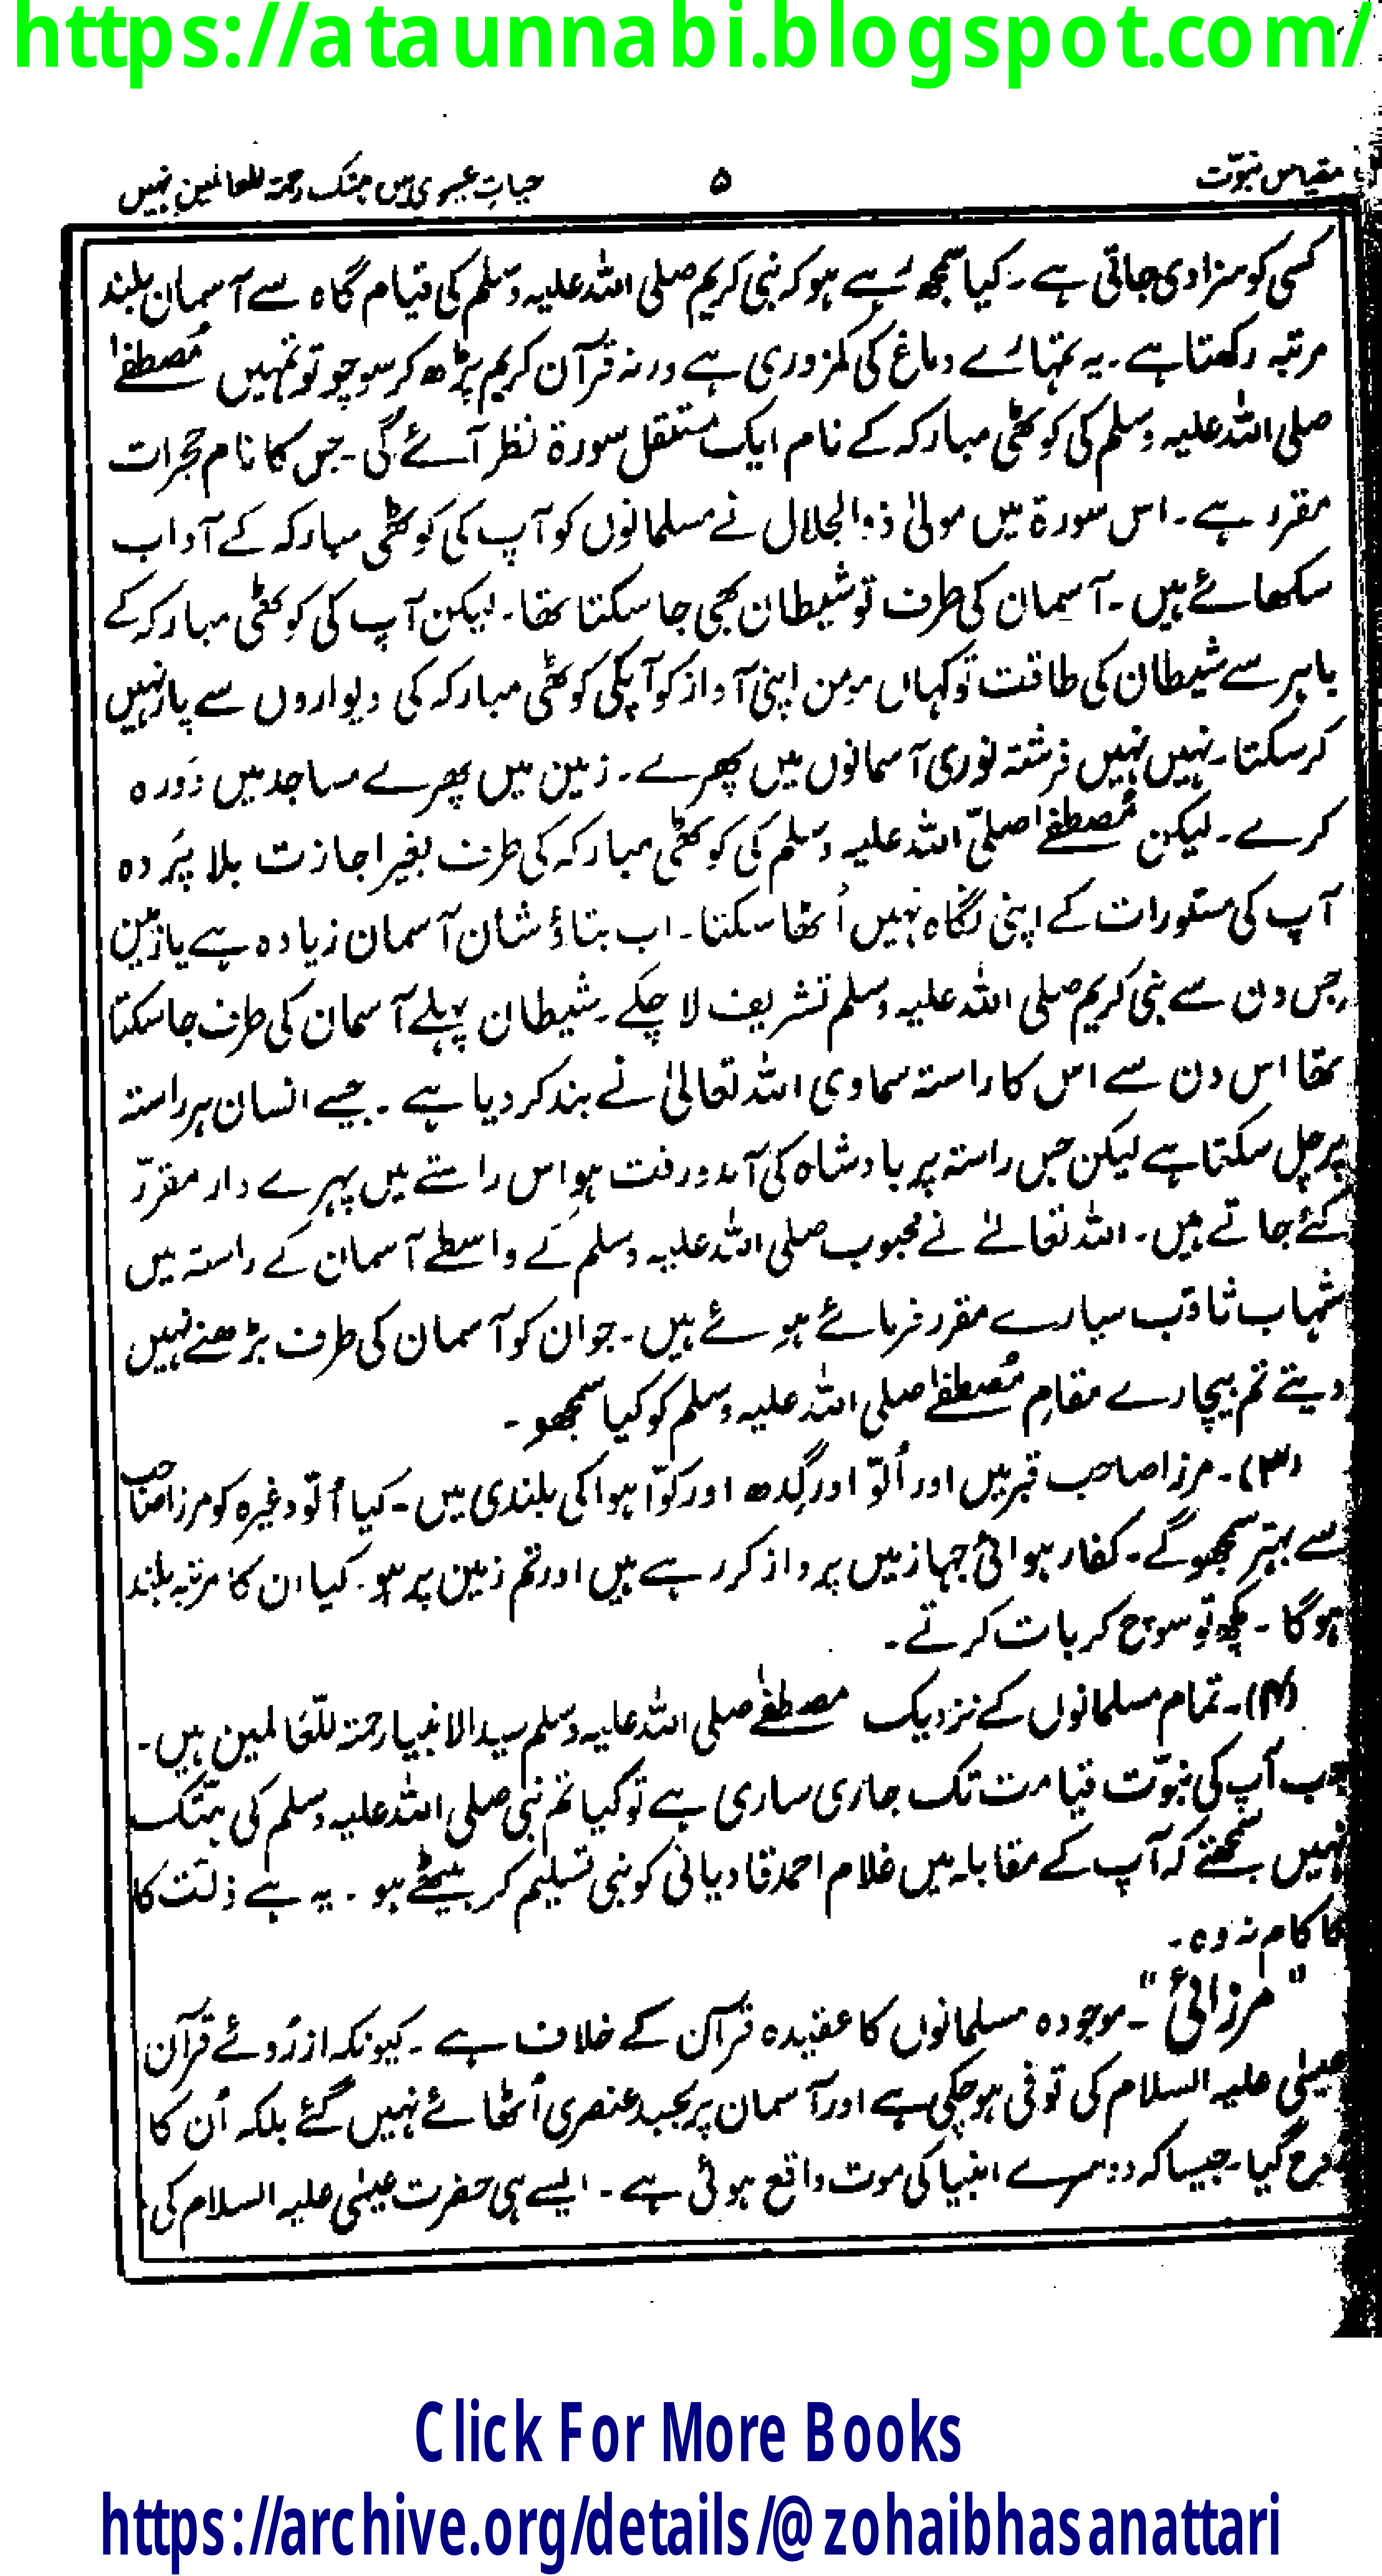 https://ataunnabi.blogspot.com/
مقیاس نبوّت ۵ حیاتِ عیسوی میں ہتک رحمۃ للعالمین نہیں
کسی کو سزا دی جاتی ہے۔ کیا سمجھ رہے ہو کہ نبی کریم صلی اللہ علیہ وسلم کی قیام گاہ سے آسمان بلند
مرتبہ رکھتا ہے۔ یہ تمہارے دماغ کی کمزوری ہے ورنہ قرآن کریم پڑھ کر سوچو تو تمہیں مُصطفےٰ
صلی اللہ علیہ وسلم کی کوٹھی مبارکہ کے نام ایک مستقل سورۃ نظر آئے گی۔ جس کا نام حجرات
مقرر ہے۔ اس سورۃ میں مولیٰ ذوالجلال نے مسلمانوں کو آپ کی کوٹھی مبارکہ کے آداب
سکھائے ہیں۔ آسمان کی طرف تو شیطان بھی جا سکتا تھا۔ لیکن آپ کی کوٹھی مبارکہ کے
باہر سے شیطان کی طاقت تو کہاں مومن اپنی آواز کو آپکی کوٹھی مبارکہ کی دیواروں سے پار نہیں
کر سکتا۔ نہیں نہیں فرشتہ نوری آسمانوں میں پھرے۔ زمین میں پھرے مساجد میں دَورہ
کرے۔ لیکن مُصطفےٰ صلّی اللہ علیہ وسلم کی کوٹھی مبارکہ کی طرف بغیر اجازت بلا پَردہ
آپ کی مستورات کے اپنی نگاہ نہیں اُٹھا سکتا۔ اب بتاؤ شان آسمان زیادہ ہے یا زمین
جس دن سے نبی کریم صلی اللہ علیہ وسلم تشریف لا چکے۔ شیطان پہلے آسمان کی طرف جا سکتا
تھا اس دن سے اس کا راستہ سماوی اللہ تعالیٰ نے بند کر دیا ہے۔ جیسے انسان ہر راستہ
پر چل سکتا ہے لیکن جس راستہ پر بادشاہ کی آمدورفت ہو اس راستے میں پہرے دار مقررّ
کئے جاتے ہیں۔ اللہ تعالےٰ نے محبوب صلی اللہ علیہ وسلم کے واسطے آسمان کے راستہ میں
شہاب ثاقب سیارے مقرر فرمائے ہوئے ہیں۔ جو ان کو آسمان کی طرف بڑھنے نہیں
دیتے تم بیچارے مقامِ مُصطفےٰ صلی اللہ علیہ وسلم کو کیا سمجھو۔
(۳)۔ مرزا صاحب قبر میں اور اُلّو اور گِدھ اور کوّا ہوا کی بلندی میں۔ کیا اُلّو وغیرہ کو مرزا صاحب
سے بہتر سمجھو گے۔ کفار ہوائی جہاز میں پرواز کر رہے ہیں اور تم زمین پر ہو۔ کیا ان کا مرتبہ بلند
ہو گا۔ کچھ تو سوچ کر بات کرتے۔
(۴)۔ تمام مسلمانوں کے نزدیک مصطفےٰ صلی اللہ علیہ وسلم سید الانبیا رحمۃ للّعالمین ہیں۔
جب آپ کی نبوّت قیامت تک جاری ساری ہے تو کیا تم نبی صلی اللہ علیہ وسلم کی ہتک
نہیں سمجھتے کہ آپ کے مقابلہ میں غلام احمد قادیانی کو نبی تسلیم کر بیٹھے ہو۔ یہ ہے ذلت کا
کا کام نہ وہ۔
"مرزائی"۔ موجودہ مسلمانوں کا عقیدہ قرآن کے خلاف ہے۔ کیونکہ از رُوئے قرآن
عیسٰی علیہ السلام کی توفی ہو چکی ہے اور آسمان پر بجسد عنصری اُٹھائے نہیں گئے بلکہ اُن کا
رفع گیا۔ جیسا کہ دوسرے انبیا کی موت واقع ہوئی ہے۔ ایسے ہی حضرت عیسٰی علیہ السلام کی
Click For More Books
https://archive.org/details/@zohaibhasanattari